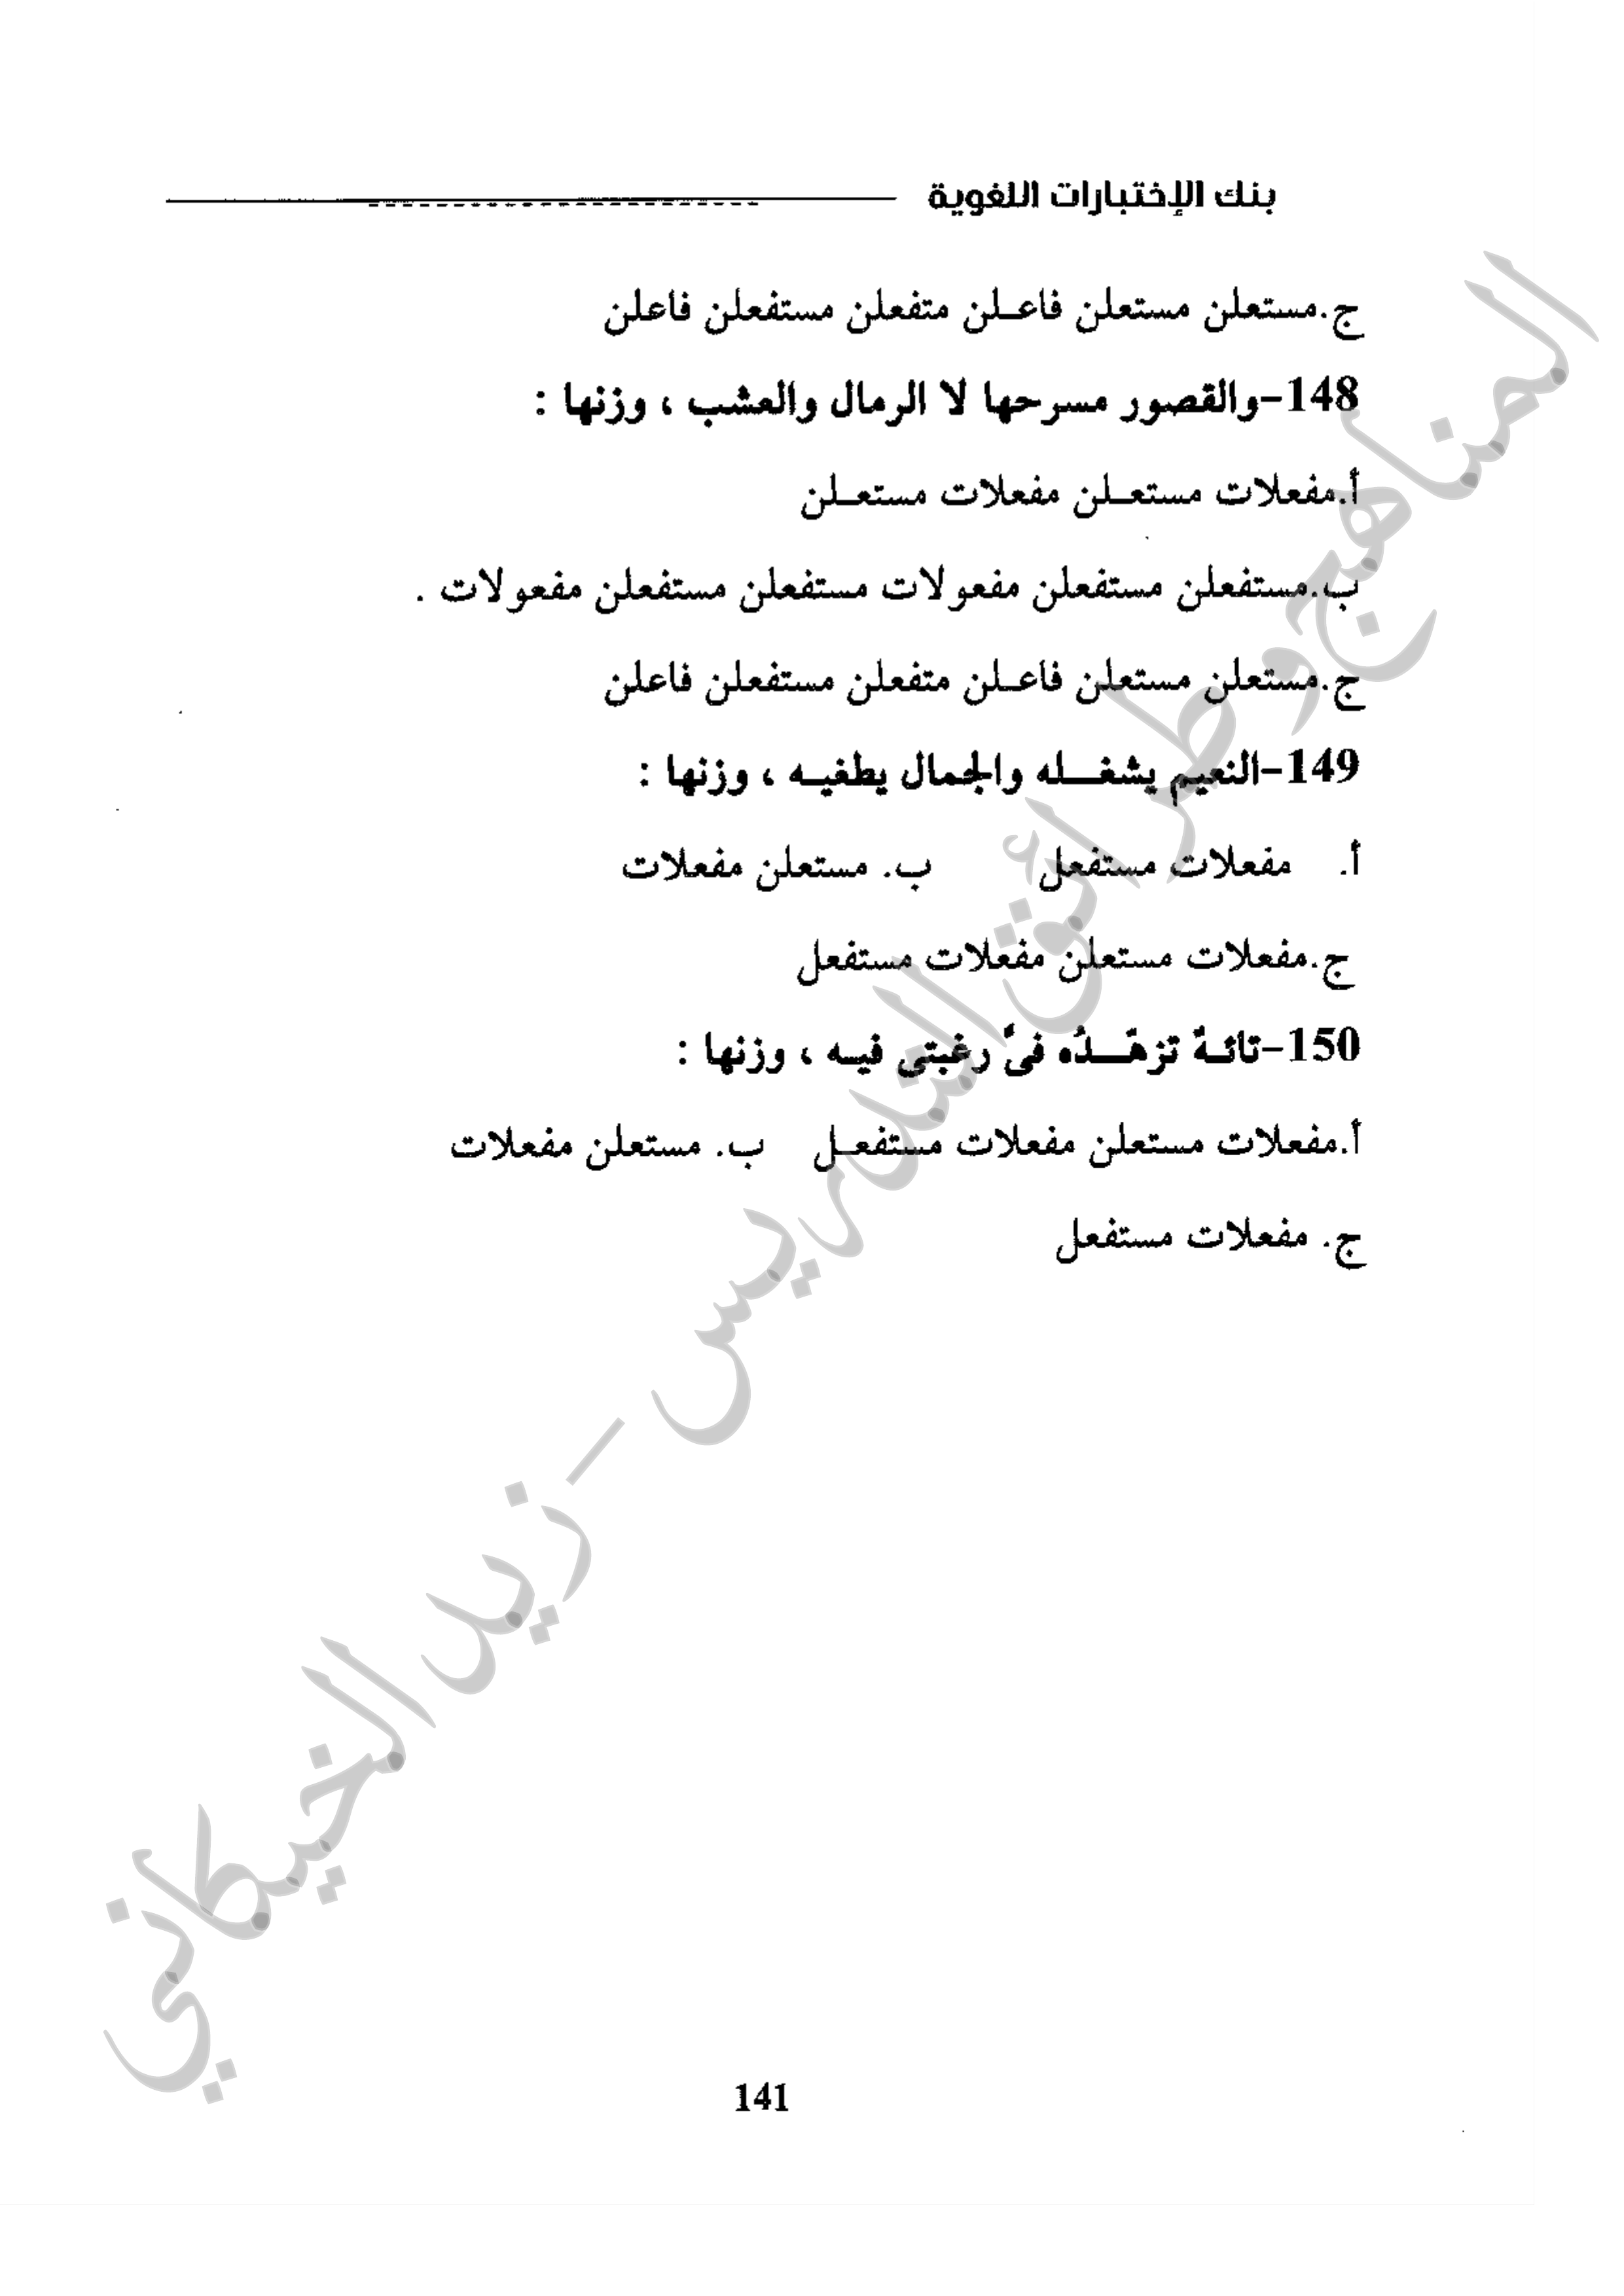 بنك الإختبارات اللغوية
ج.مستعلن مستعلن فاعـلن متفعلن مستفعلن فاعلن
148-والقصور مسرحها لا الرمال والعشب ، وزنها :
أ.مفعلات مستعـلن مفعلات مستعـلن
ب.مستفعلن مستفعلن مفعولات مستفعلن مستفعلن مفعولات .
ج.مستعلن مستعلن فاعـلن متفعلن مستفعلن فاعلن
149-النعيم يشغـــله والجمال يطغيـه ، وزنها :
أ. مفعلات مستفعل ب. مستعلن مفعلات
ج.مفعلات مستعلن مفعلات مستفعل
150-تائـهٌ تزهّـــدُه فىَّ رغبتى فيـه ، وزنها :
أ.مفعلات مستعلن مفعلات مستفعـل ب. مستعلن مفعلات
ج. مفعلات مستفعل
المناهج وطرائق التدريس - زيد الخيكاني
141